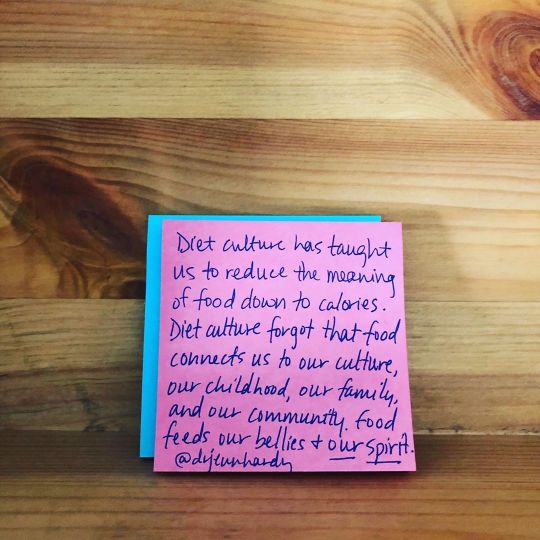 Diet culture has taught
us to reduce the meaning
of food down to calories.
Diet culture forgot that food
connects us to our culture,
our childhood, our family,
and our community. Food
feeds our bellies + our spirit.